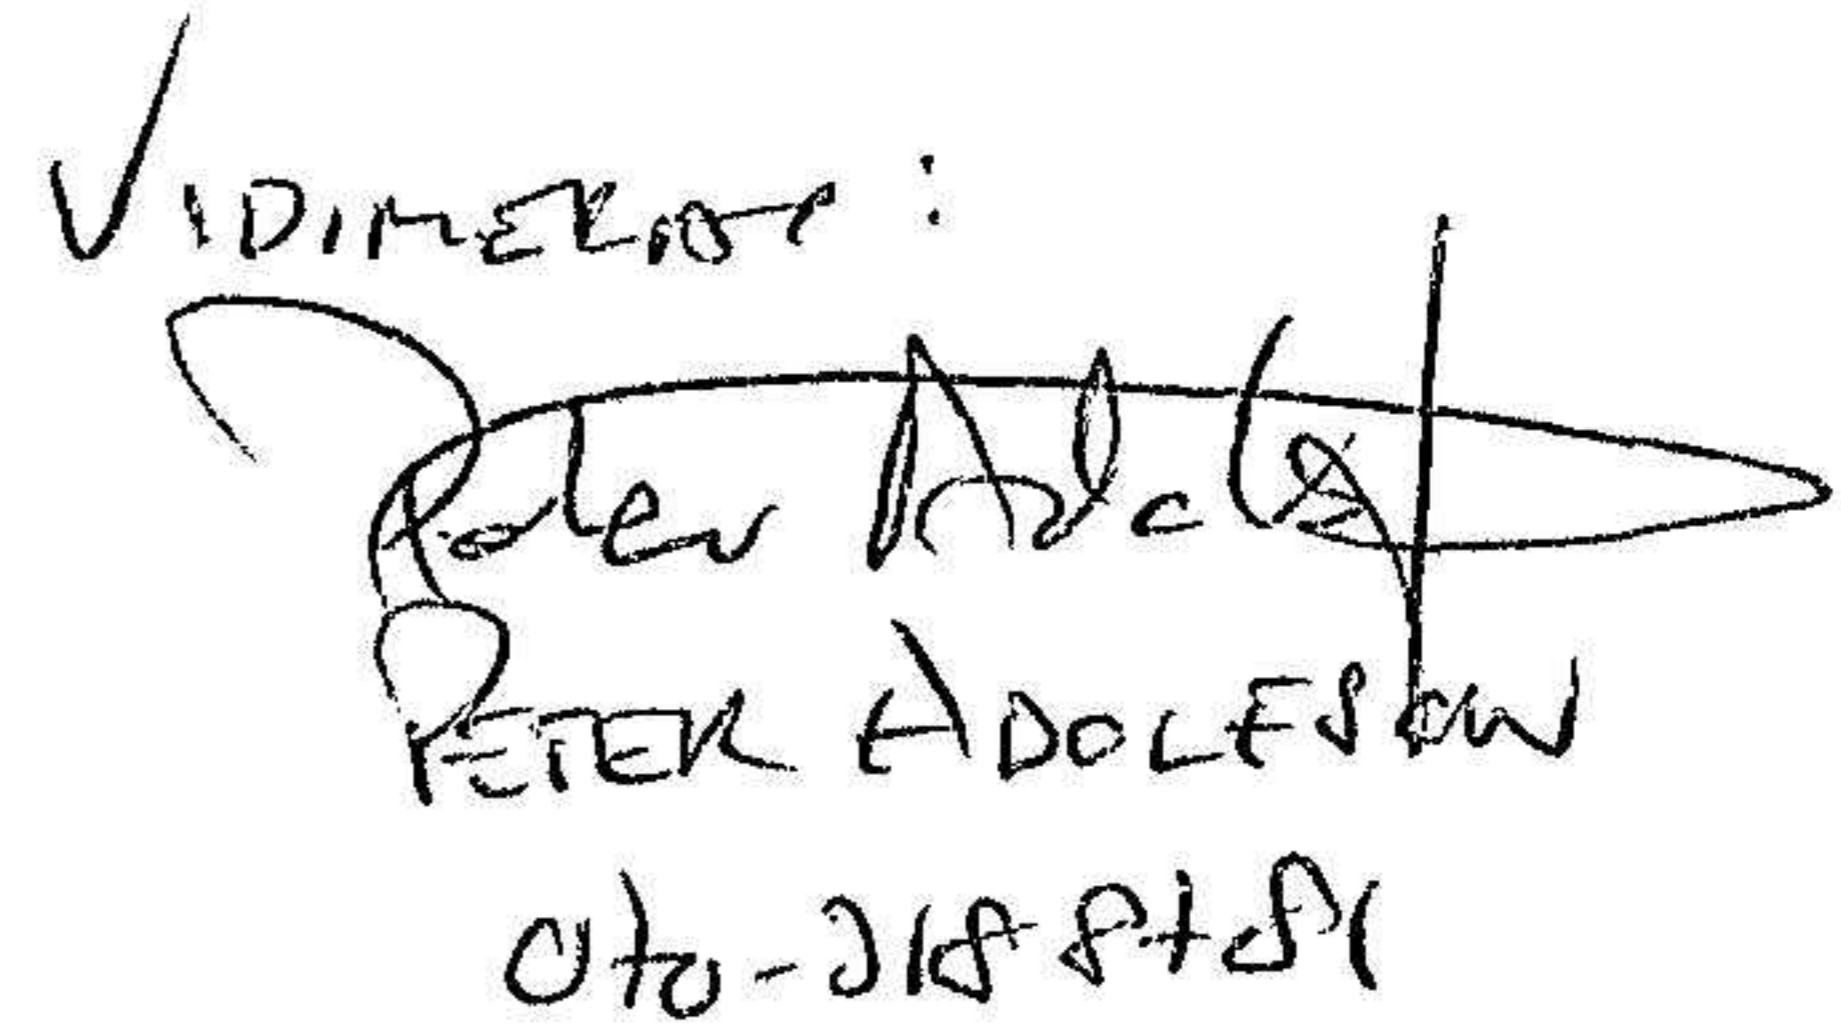 VIDIMERAS:
Peter Adolfsson
PETER ADOLFSSON
070-318 87 81